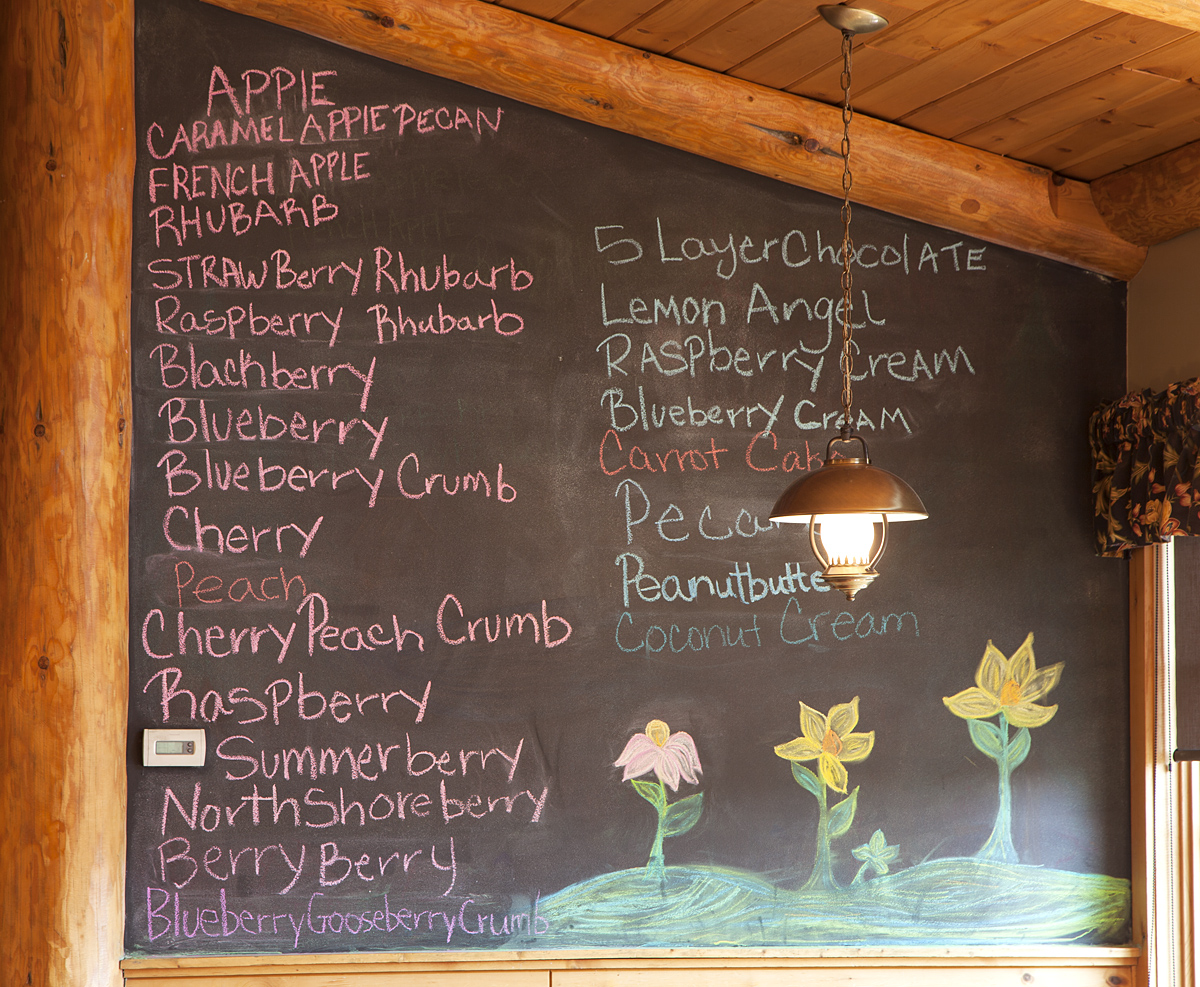 APPlE
CARAMEL APPlE PECAN
FRENCH APPLE
RHUBARB
STRAWBerry Rhubarb
Raspberry Rhubarb
Blackberry
Blueberry
Blueberry Crumb
Cherry
Peach
Cherry Peach Crumb
Raspberry
Summerberry
NorthShoreberry
Berry Berry
Blueberry Gooseberry Crumb
5 Layer ChocolATE
Lemon Angel
RASPberry Cream
Blueberry CreAM
Carrot Cake
Peca
Peanutbutte
Coconut Cream